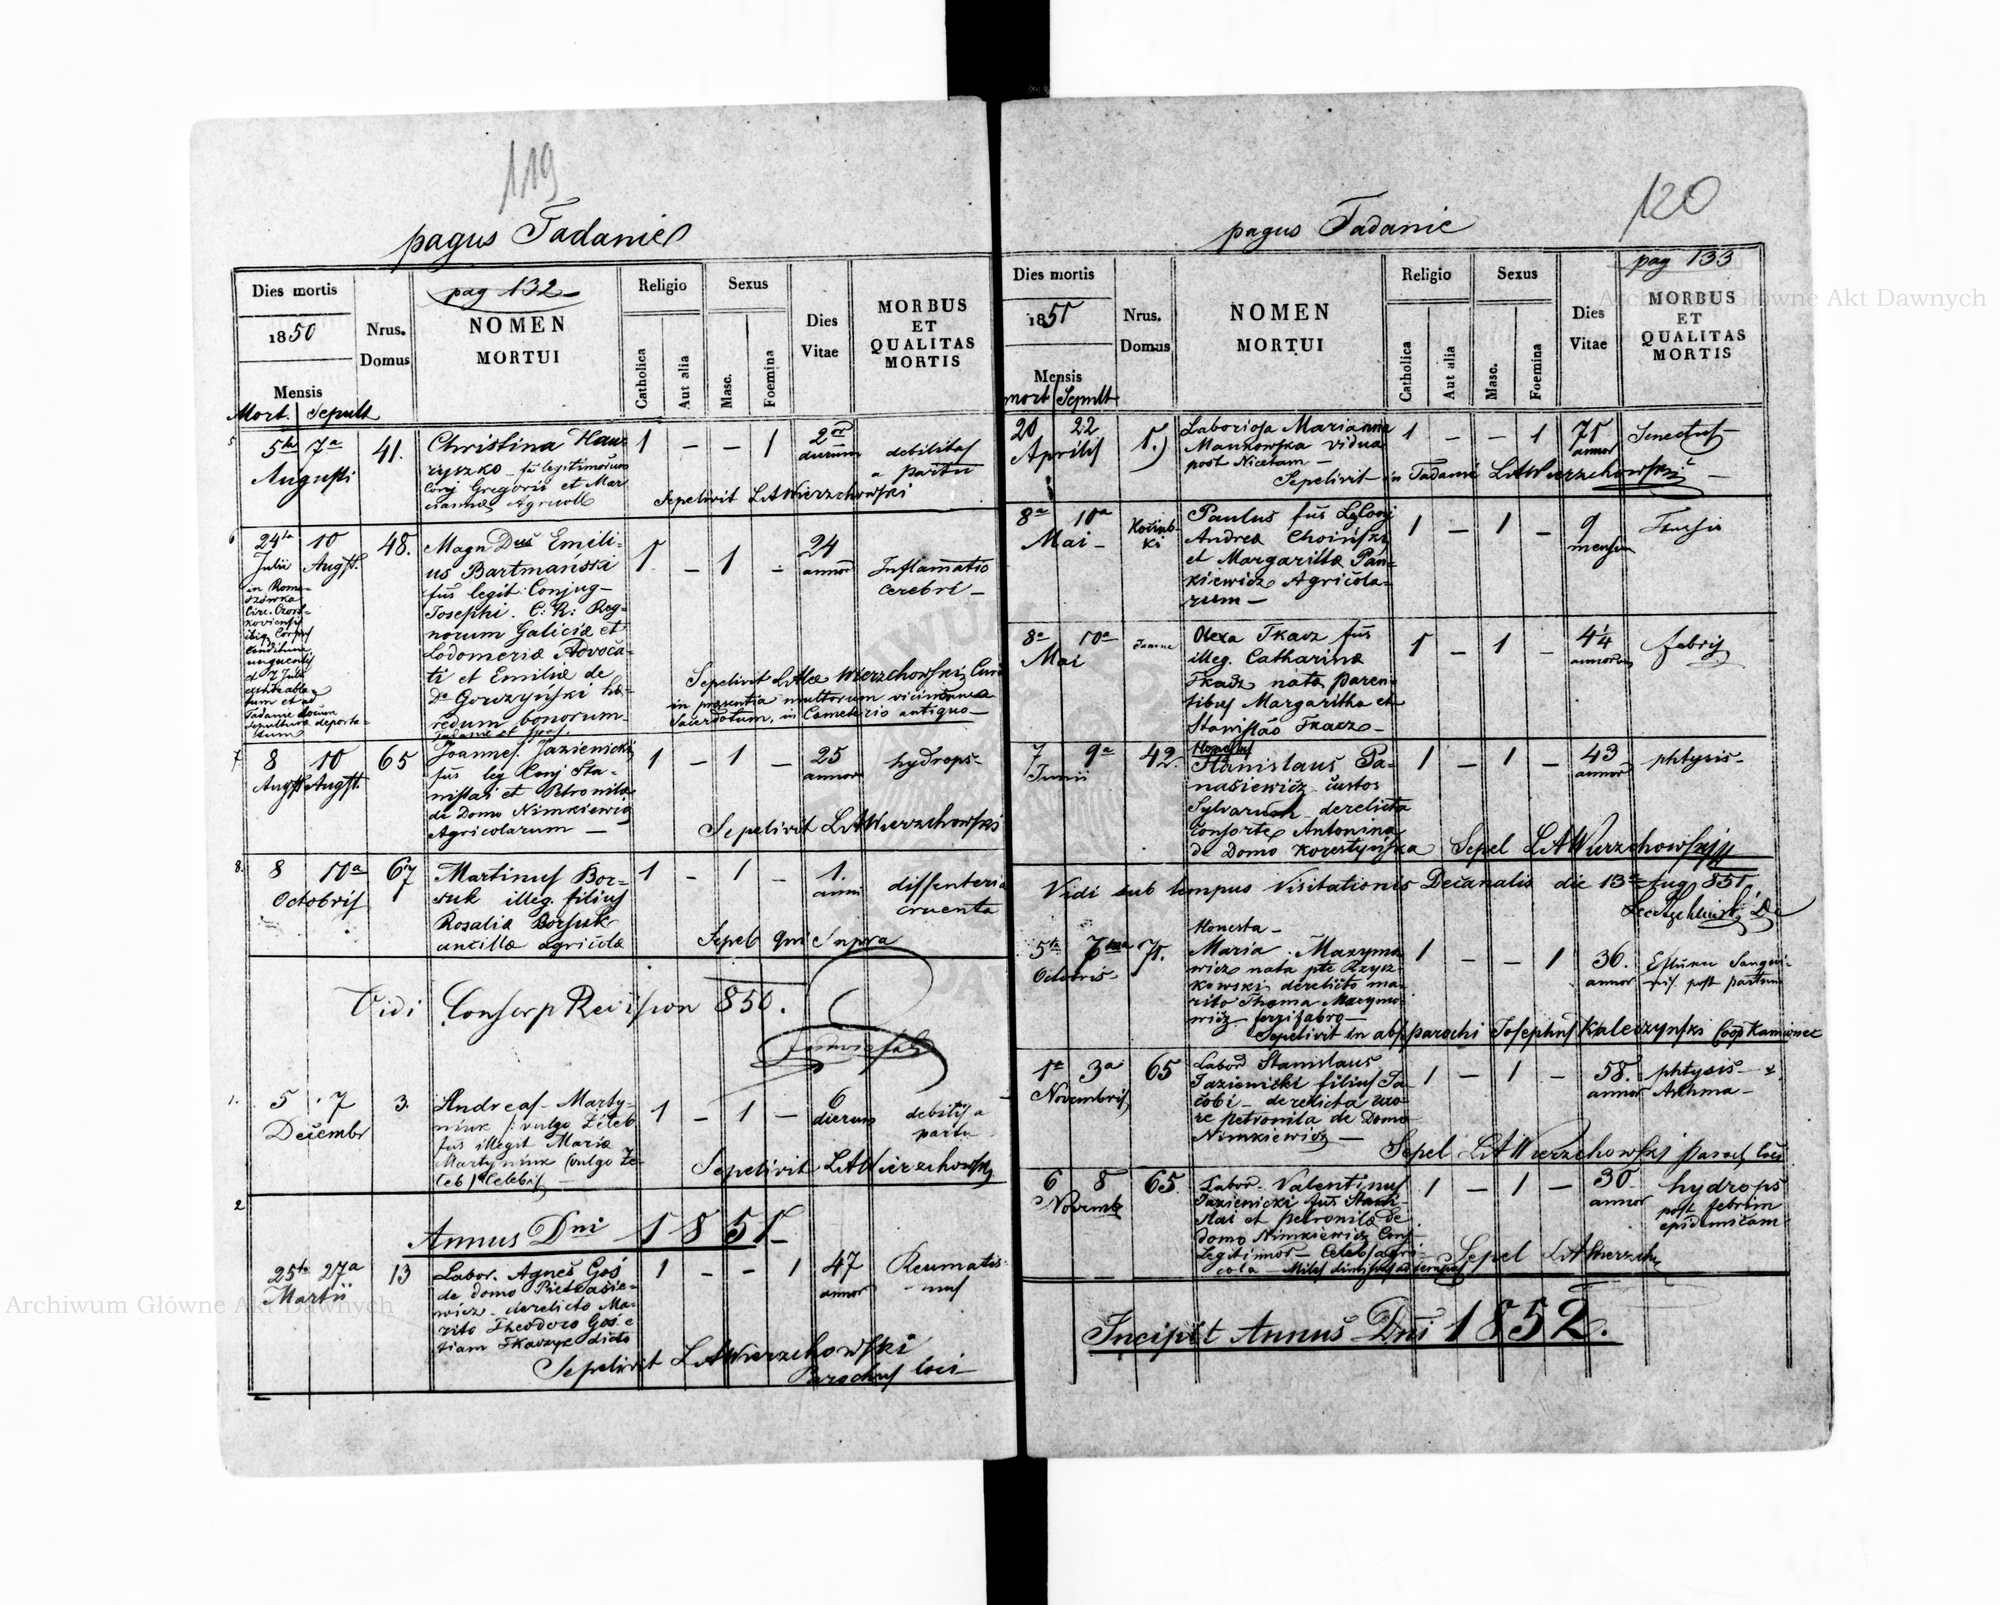 119
pagus Tadanie
pag 132
Dies mortis
1850
Mensis
Mort. Sepult
Nrus.
Domus
NOMEN
MORTUI
Religio
Catholica
Aut alia
Sexus
Masc.
Foemina
Dies
Vitae
MORBUS
ET
QUALITAS
MORTIS
5 5ta 7a
Augusti
41.
Christina Hau-
ryszko
Conj Gregorii et Mar
iannæ Agricolæ
1 – – 1
2
dierum
debilitas
a partu
Sepelivit LAWierzchowski
6 24ta 10
Julii Augst.
48.
Magn Dus Emili-
us Bartmański
fus legit Conjug-
Josephi. C: R: Reg-
norum Galiciæ et
Lodomeriæ Advoca-
ti et Emiliæ de
De Gorczyński hæ-
redum bonorum
Tadanie et
1. – 1 –
24
annor
Inflamatio
cerebri –
Sepelivit
in præsentia multorum vicinorum
Sacerdotum, in Cæmeterio antiquo
7 8 10
Augst Augst.
65
Joannes Jazienicki
fus leg Conj Sta-
nislai et Petronilæ
de Domo Nimkiewicz
Agricolarum –
1 – 1 –
25
annor
hydrops –
Sepelivit LAWierzchowski
8. 8 10a
Octobris
67
Martinus Bor-
suk illeg. filius
Rosaliæ Borsuk
ancillæ agricolæ
1 – 1 –
1.
anni
dissenteria
cruenta
Sepel qui Supra
Vidi 850.
1. 5 7
Decembr
3.
Andreas Marty-
niuk /: vulgo Zeleb
fus illegit Mariæ
Martyniuk (vulgo Ze-
leb) Celebis
1 – 1 –
6
dierum
debilis a
partu
Sepelivit LAWierzchowski
2
Annus Dni 1851
25ta 27a
Martii
13
Labor. Agnes Goś
de domo Pietrasie-
wicz derelicto Ma-
rito Theodoro Goś e
tiam Tkaczyc dicto
1 – – 1
47
annor
Reumatis-
mus
Sepelivit LAWierzchowski
Parochus loci
120
pagus Tadanie
pag 133
Dies mortis
1851
Mensis
mort Sepult
Nrus.
Domus
NOMEN
MORTUI
Religio
Catholica
Aut alia
Sexus
Masc.
Foemina
Dies
Vitae
MORBUS
ET
QUALITAS
MORTIS
20 22
Aprilis
1.)
Laboriosa Marianna
Mankowska vidua
post Nicetam –
1 – – 1
71
annor
Senectus
Sepelivit in Tadanie LAWierzchowski –
8a 10a
Mai –
Paulus fus
Andreæ Choiński
et Margarittæ Pan-
kiewicz Agricola-
rum –
1 – 1 –
9
mensium
Tussis
8a 10a
Mai
Olexa Tkacz fus
illeg. Catharinæ
Tkacz nata paren-
tibus Margaritha et
Stanislao Tkacz –
1 – 1 –
4 1/4
annorum
febris
7 9a
Junii
42.
Honestus
Stanislaus Pa-
nasiewicz custos
Sylvarum derelicta
Consorte Antonina
de Domo Korestyńska
1 – 1 –
43
annor
phtysis –
Sepel LAWierzchowski
Vidi sub tempus Visitationis Decanalis die 13 Aug 851,
5ta 7ma
Octobris
71.
Honesta –
Maria Maxymo
wicz nata pte Krysz-
kowski derelicto ma-
rito Thoma Maxymo
wicz ferrifabro –
1 – – 1
36.
annor
Efluxu Sangui-
nis post partum
Sepelivit in abs parochi Josephus Kaleczyński Coop Kamionec
1a 3a
Novembris
65
Labor Stanislaus
Jazienicki filius Ja-
cobi derelicta uxo-
re petronila de Domo
Nimkiewicz –
1 – 1 –
58.
annor
phtysis – &
Asthma –
Sepel LAWierzchowski Paroch loci
6 8
Novemb
65.
Labor. Valentinus
Jazienicki fus Stani-
slai et petronilæ de
domo Nimkiewicz Conj
Legitimor – Celebs agri-
cola – Miles
1 – 1 –
30
annor
hydrops
post febrim
epidemicam
Sepel LAWierzch
Incipit Annus Dni 1852.
Archiwum Główne Akt Dawnych
Archiwum Główne Akt Dawnych